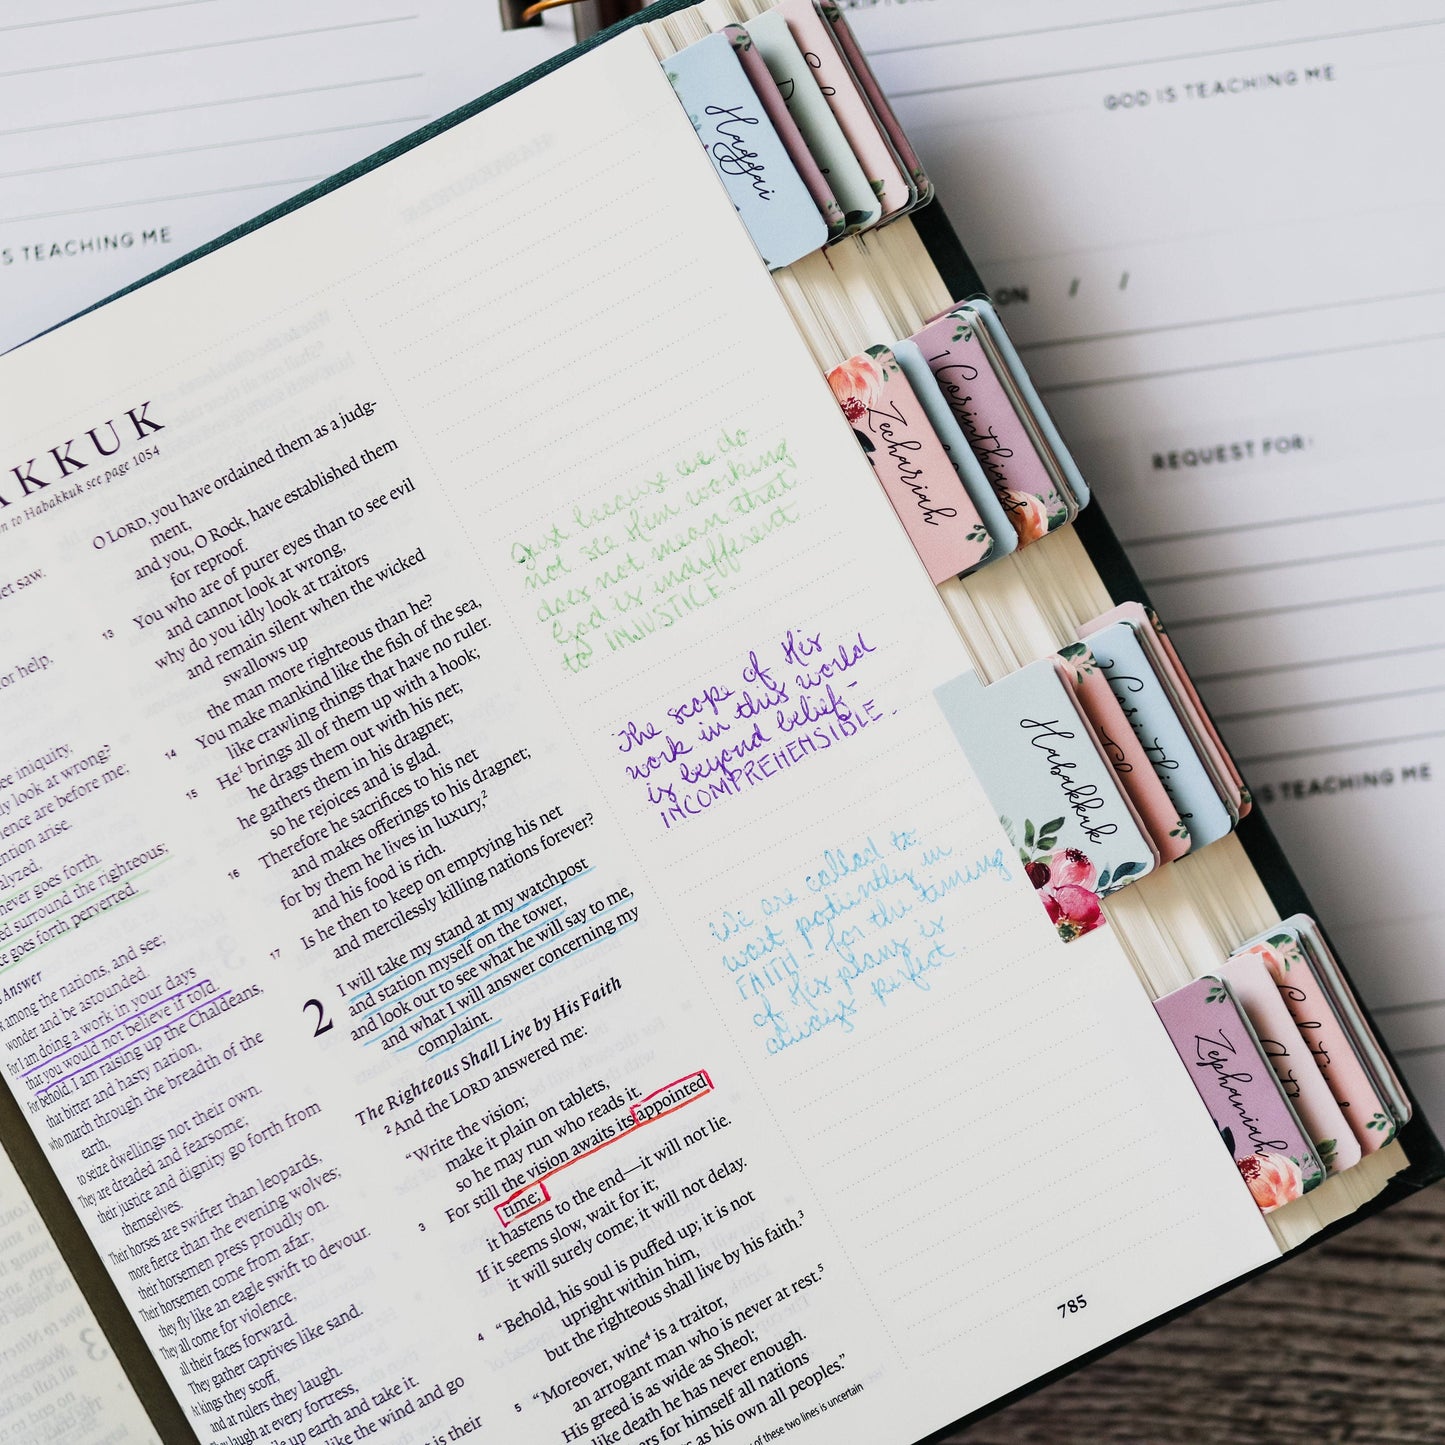 AKKUK
n to Habakkuk see page 1054
et saw.
or help,
ee iniquity,
ly look at wrong?
ence are before me;
ntion arise.
alyzed.
never goes forth.
ed surround the righteous;
e goes forth perverted.
s Answer
among the nations, and see;
wonder and be astounded.
For I am doing a work in your days
that you would not believe if told.
For behold, I am raising up the Chaldeans,
that bitter and hasty nation,
who march through the breadth of the
earth,
to seize dwellings not their own.
They are dreaded and fearsome;
their justice and dignity go forth from
themselves.
Their horses are swifter than leopards,
more fierce than the evening wolves;
their horsemen press proudly on.
Their horsemen come from afar;
they fly like an eagle swift to devour.
They all come for violence,
all their faces forward.
They gather captives like sand.
At kings they scoff,
and at rulers they laugh.
They laugh at every fortress,
le up earth and take it.
like the wind and go
t is their
O LORD, you have ordained them as a judg-
ment,
and you, O Rock, have established them
for reproof.
13 You who are of purer eyes than to see evil
and cannot look at wrong,
why do you idly look at traitors
and remain silent when the wicked
swallows up
the man more righteous than he?
14 You make mankind like the fish of the sea,
like crawling things that have no ruler.
15 He¹ brings all of them up with a hook;
he drags them out with his net;
he gathers them in his dragnet;
so he rejoices and is glad.
16 Therefore he sacrifices to his net
and makes offerings to his dragnet;
for by them he lives in luxury,²
and his food is rich.
17 Is he then to keep on emptying his net
and mercilessly killing nations forever?
2 I will take my stand at my watchpost
and station myself on the tower,
and look out to see what he will say to me,
and what I will answer concerning my
complaint.
The Righteous Shall Live by His Faith
² And the LORD answered me:
“Write the vision;
make it plain on tablets,
so he may run who reads it.
3 For still the vision awaits its appointed
time;
it hastens to the end—it will not lie.
If it seems slow, wait for it;
it will surely come; it will not delay.
4 “Behold, his soul is puffed up; it is not
upright within him,
but the righteous shall live by his faith.³
5 “Moreover, wine⁴ is a traitor,
an arrogant man who is never at rest.⁵
His greed is as wide as Sheol;
like death he has never enough.
ers for himself all nations
s as his own all peoples.”
of these two lines is uncertain
785
Just because we do
not see Him working
does not mean that
God is indifferent
to INJUSTICE
The scope of His
work in this world
is beyond belief-
INCOMPREHENSIBLE.
We are called to
wait patiently in
FAITH - for the timing
of His plans is
always perfect
Haggai
Zechariah
1 Corinthians
Habakkuk
2 Corinthians
Zephaniah
GOD IS TEACHING ME
S TEACHING ME
ON / /
REQUEST FOR:
IS TEACHING ME